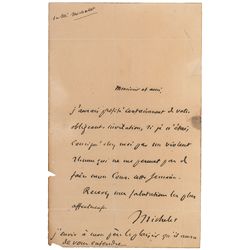 Monsieur et ami
j'aurais profité certainement de votre
obligeante invitation, si je n'étais
consigné chez moi par un violent
rhume qui ne me permet pas de
faire mon Cours cette semaine.
Recevez mes salutations les plus
affectueuses
Michelet
j'envie à mon père le plaisir qu'il aura
de vous entendre.